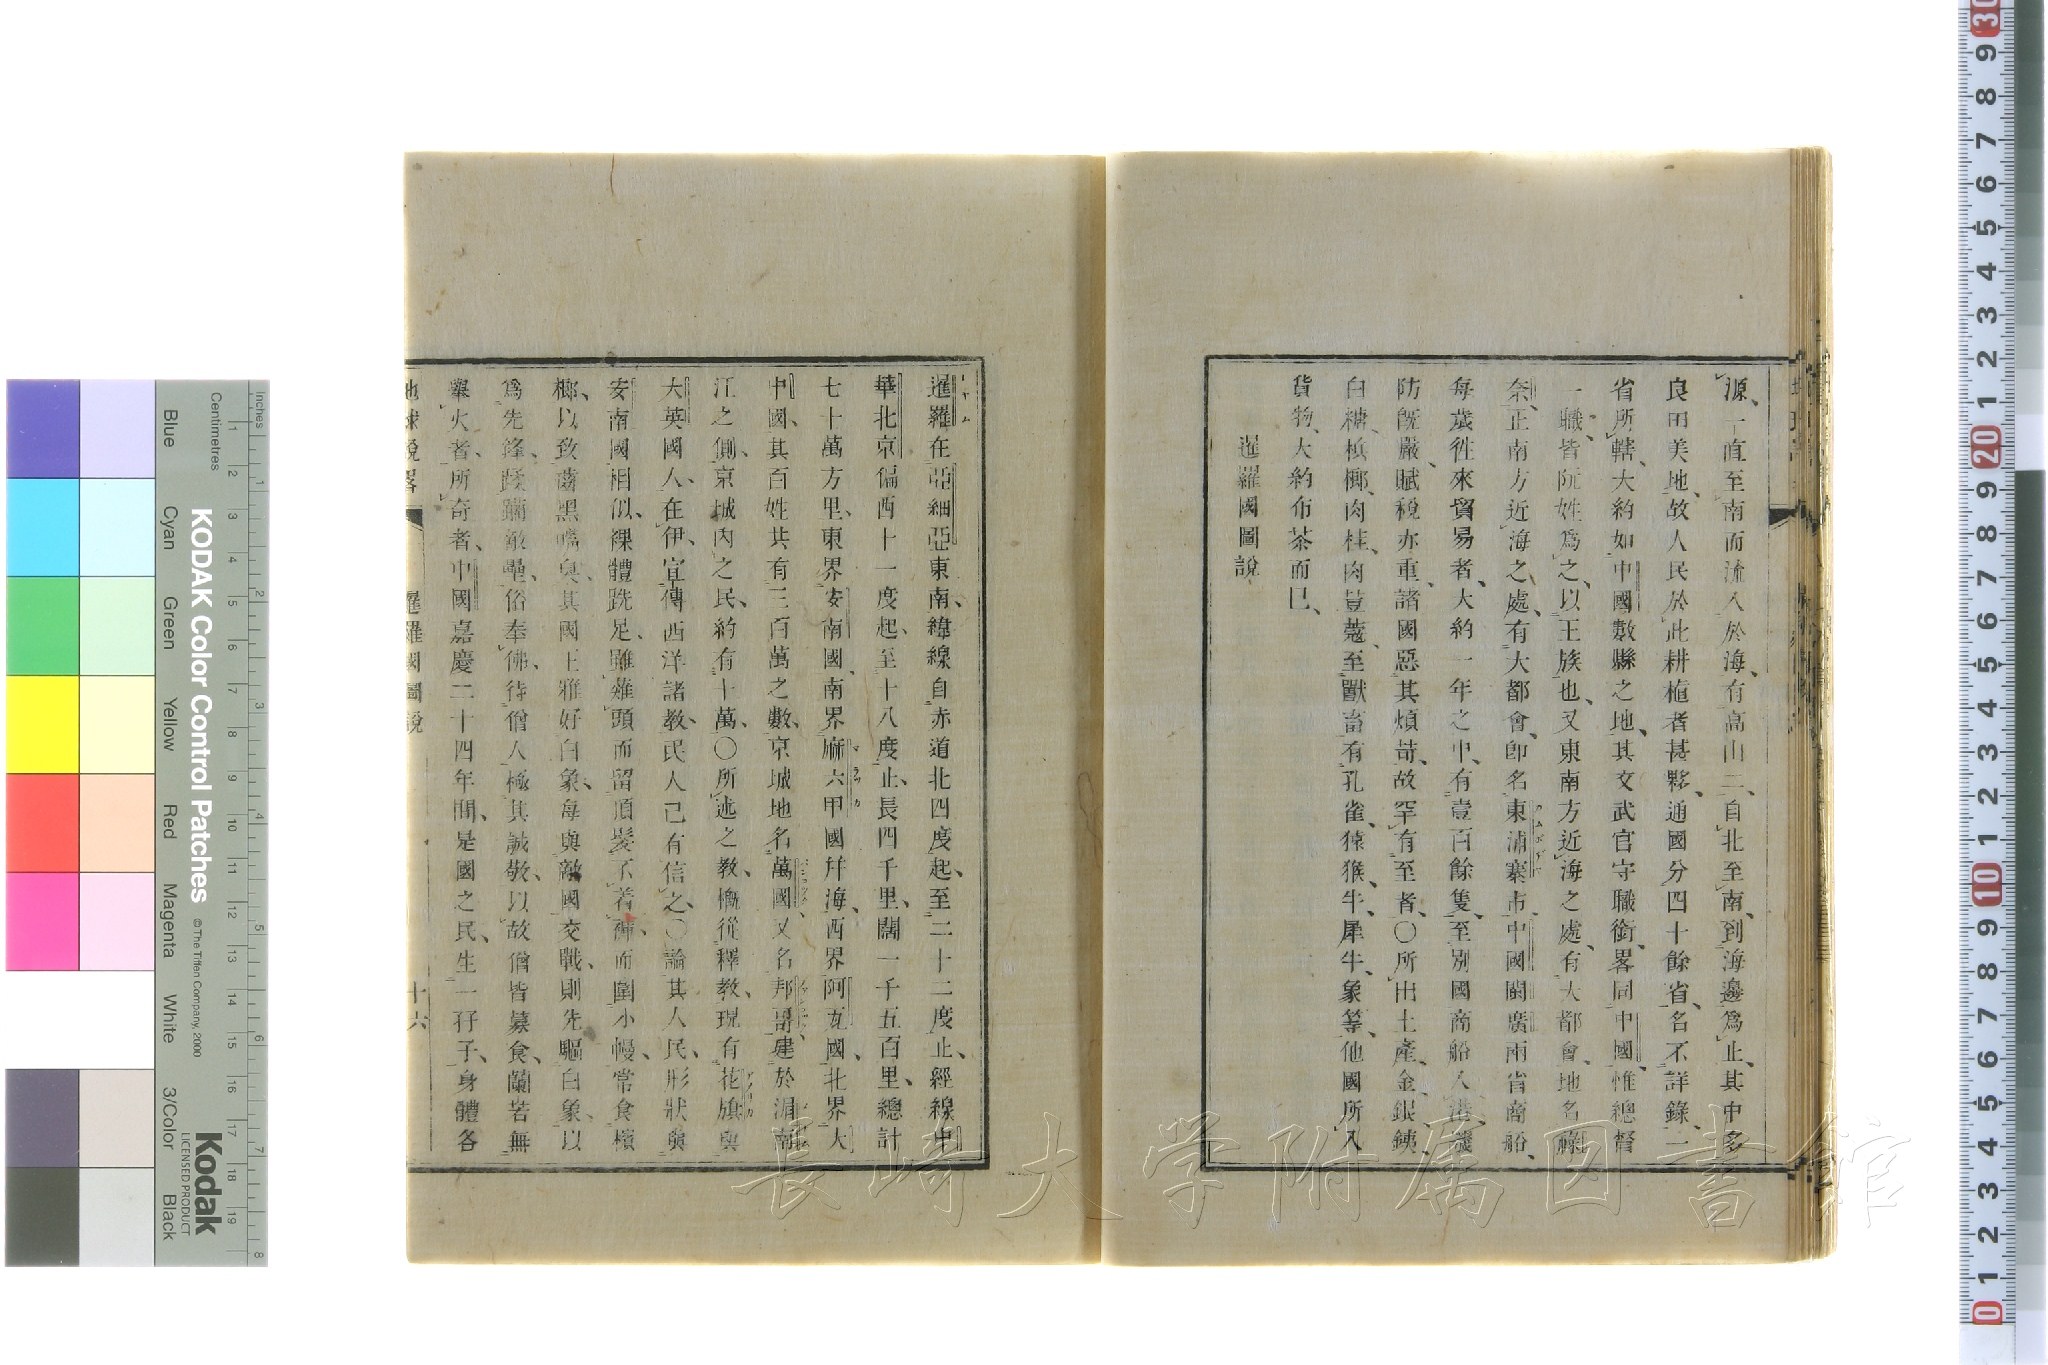 源、一直至南而流入於海、有高山二、自北至南、到海邊爲止、其中多
良田美地、故人民於此耕植者甚夥、通國分四十餘省、名不詳錄、一
省所轄、大約如中國數縣之地、其文武官守職銜、畧同中國、惟總督
一職、皆阮姓爲之、以王族也、又東南方近海之處、有大都會、地名祿
奈、正南方近海之處、有大都會、卽名東浦寨市、中國閩廣兩省商船、
每歲往來貿易者、大約一年之中、有壹百餘隻、至別國商船入港、譏
防旣嚴、賦稅亦重、諸國惡其煩苛、故罕有至者、〇所出土產、金、銀、銕、
白糖、檳榔、肉桂、肉荳蔻、至獸畜有孔雀、猿猴、牛、犀牛、象等、他國所入
貨物、大約布茶而已、
暹羅國圖說
暹羅在亞細亞東南、緯線自赤道北四度起、至二十二度止、經線中
華北京偏西十一度起、至十八度止、長四千里、闊一千五百里、總計
七十萬方里、東界安南國、南界麻六甲國幷海、西界阿瓦國、北界大
中國、其百姓共有三百萬之數、京城地名萬國、又名邦哥、建於湄南
江之側、京城內之民、約有十萬、〇所述之教、槪從釋教、現有花旗與
大英國人、在伊宣傳西洋諸教、民人己有信之、〇論其人民、形狀與
安南國相似、裸體跣足、雖薙頭而留頂髮、不着褲而圍小幔、常食檳
榔、以致齒黑嘴臭、其國王雅好白象、每與敵國交戰、則先驅白象、以
爲先鋒、蹂躪敵壘、俗奉佛、待僧人極其誠敬、以故僧皆募食、闌若無
舉火者、所奇者、中國嘉慶二十四年間、是國之民、生一孖子、身體各
地球說畧
暹羅國圖說
十六
KODAK Color Control Patches
© The Tiffen Company, 2000
Kodak
LICENSED PRODUCT
Inches
Centimetres
Blue
Cyan
Green
Yellow
Red
Magenta
White
3/Color
Black
長崎大学附属図書館